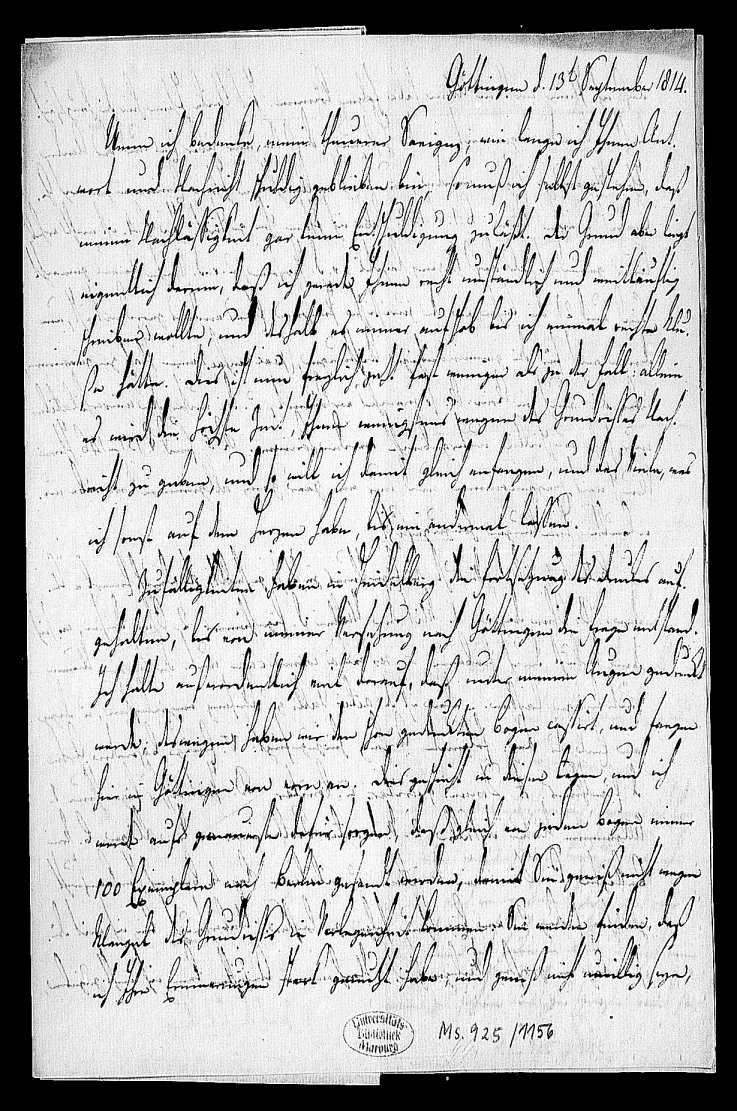 Göttingen d. 13t September 1814.
Wenn ich bedenke, mein theurer Savigny, wie lange ich Ihnen Ant-
wort und Nachricht schuldig geblieben bin, so muß ich selbst gestehen, daß
meine Nachlässigkeit gar keine Entschuldigung zuläßt. Der Grund aber liegt
eigentlich darinn, daß ich gerade Ihnen recht umständlich und weitläuftig
schreiben wollte, und deshalb es immer aufschob bis ich einmal rechte Mu-
ße hätte. Dies ist nun freylich jetzt fast weniger als je der Fall: allein
es wird die höchste Zeit, Ihnen wenigstens wegen des Grundrisses Nach-
richt zu geben, und so will ich damit gleich anfangen, und das Viele, was
ich sonst auf dem Herzen habe, bis ein andermal lassen.
Zufälligkeiten haben in Heidelberg die Fortsetzung des Druckes auf-
gehalten, bis von meiner Versetzung nach Göttingen die Frage entstand.
Ich halte außerordentlich viel darauf, daß unter meinen Augen gedruckt
werde, deswegen haben wir den schon gedruckten Bogen cassirt, und fangen
hier in Göttingen von vorn an. Dies geschieht in diesen Tagen, und ich
werde aufs genaueste dafür sorgen, daß gleich von jedem Bogen immer
100 Exemplare nach Berlin gesandt werden, damit Sie gewiß nicht wegen
Mangel des Grundrisses in Verlegenheit kommen. Sie werden finden, daß
ich Ihre Erinnerungen stets genutzt habe, und gewiß nicht unwillig seyn,
Universitäts-
Bibliothek
Marburg
Ms. 925/1156